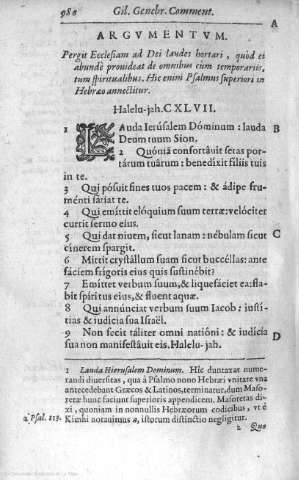 980 Gil. Genebr. Comment.
A
ARGVMENTVM.
Pergit Ecclesiam ad Dei laudes hortari, quòd ei
abundè prouideat de omnibus cùm temporariis,
tum spiritualibus. Hic enim Psalmus superiori in
Hebræo annectitur.
Halelu-jah. CXLVII.
1 LAuda Ierúsalem Dóminum: lauda B
Deum tuum Sion.
2 Quóniã confortáuit seras por-
tárum tuárum: benedixit filiis tuis
in te.
3 Qui pósuit fines tuos pacem: & ádipe fru-
ménti sátiat te.
4 Qui emíttit elóquium suum terræ: velóciter
currit sermo eius.
5 Qui dat niuem, sicut lanam: nébulam sicut C
cínerem spargit.
6 Mittit crystállum suam sicut buccéllas: ante
fáciem frígoris eius quis sustinébit?
7 Emíttet verbum suum, & liquefáciet ea: fla-
bit spíritus eius, & fluent aquæ.
8 Qui annúnciat verbum suum Iacob: iustí-
tias & iudícia sua Israël.
9 Non fecit táliter omni natióni: & iudícia
sua non manifestáuit eis. Halelu-jah. D
1 Lauda Hierusalem Dominum. Hîc duntaxat nume-
randi diuersitas, qua à Psalmo nono Hebræi vnitate vna
antecedebant Græcos & Latinos, terminatur, dum Maso-
retæ hunc faciunt superioris appendicem. Masoretas di-
xi, quoniam in nonnullis Hebræorum codicibus, vt è
a Psal. 113. Kimhi notauimus a, istorum distinctio negligitur.
2 Quo